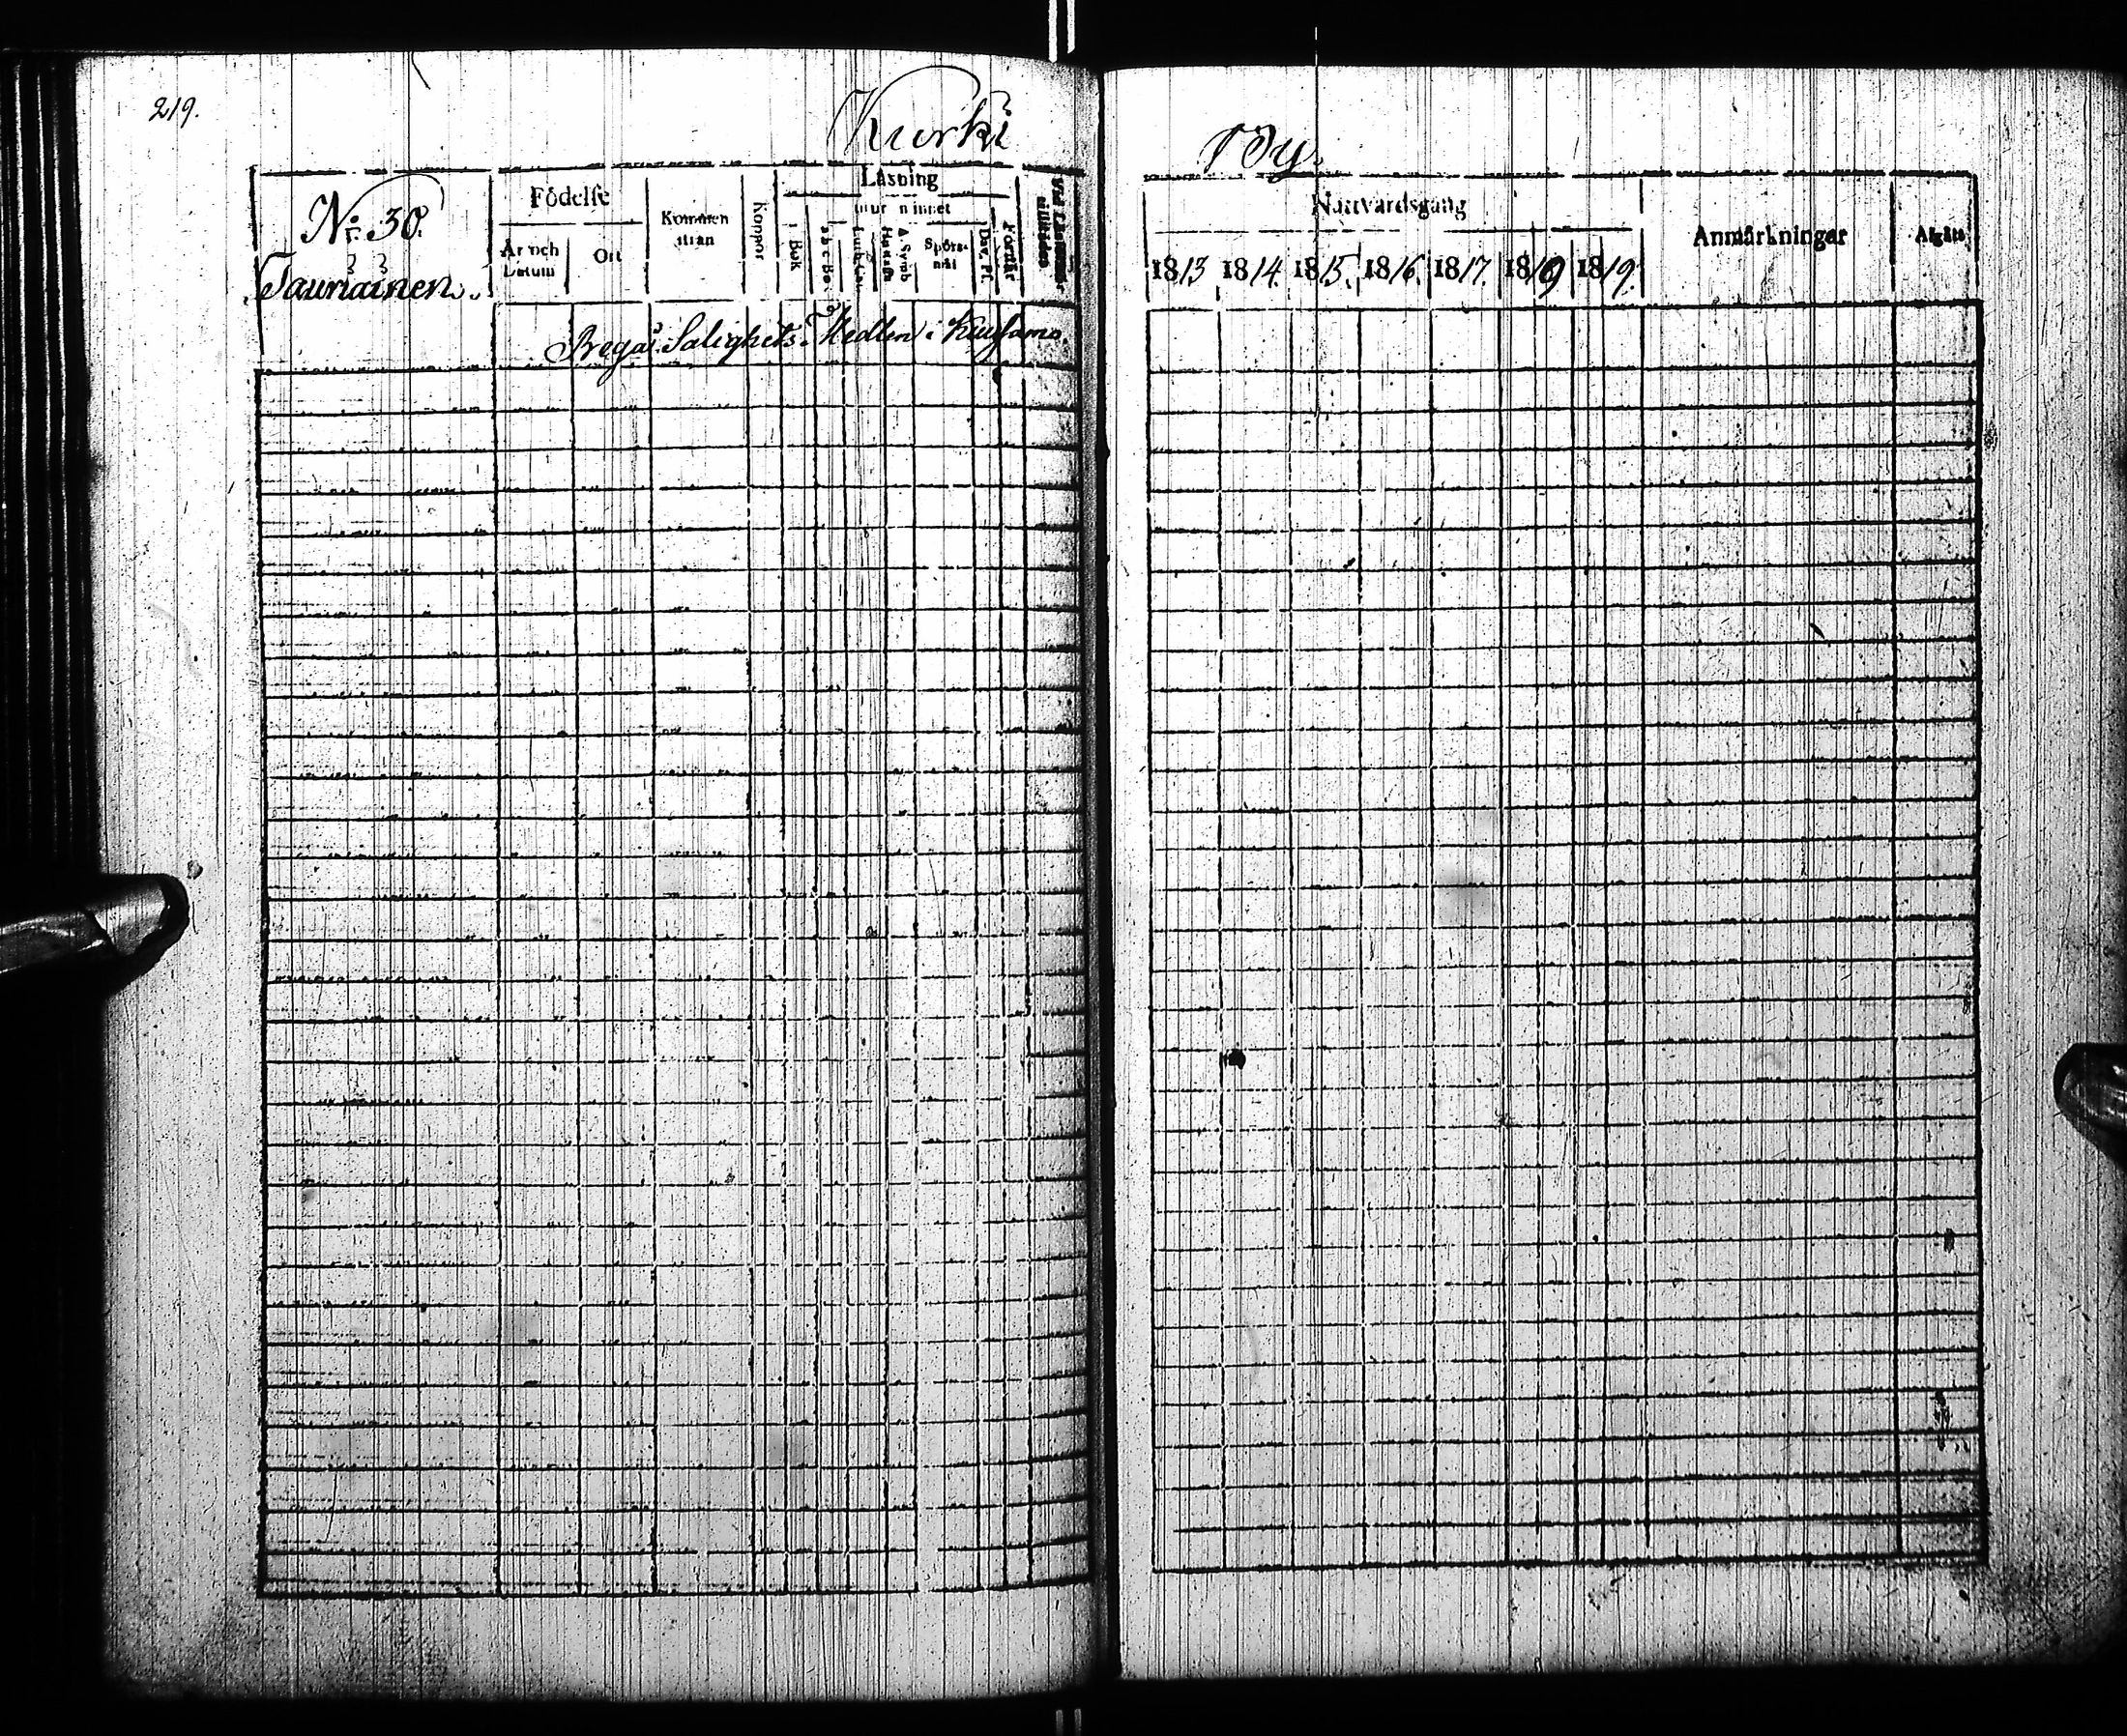 219.
Kurki By.
No. 30.
Tauriainen.
Födelse
År och Datum
Ort
Kommen ifrån
Koppor
Läsning
i Bok
utur minnet
a b c Bo.
Luth. Cat.
Hustafla
A. Symb
Spörsmål
Dav. Ps.
Förstår
Vid Läsmöter tillstädes
Begå Salighets Medlen i Kuusamo.
Nattvardsgång
1813 1814. 1815. 1816. 1817. 1819 1819.
Anmärkningar
Afgått